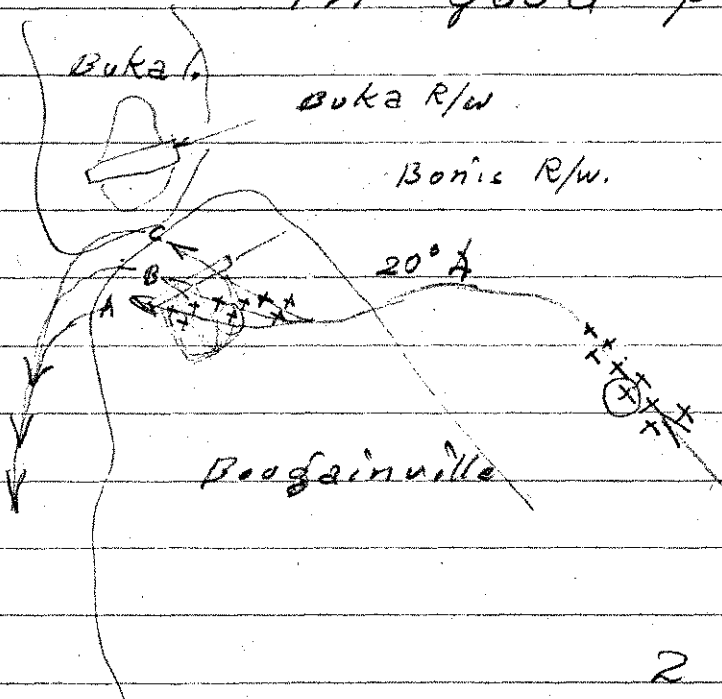 in good p
Buka I.
Buka R/w
Bonis R/w.
20° A
C
B
A
Bougainville
2